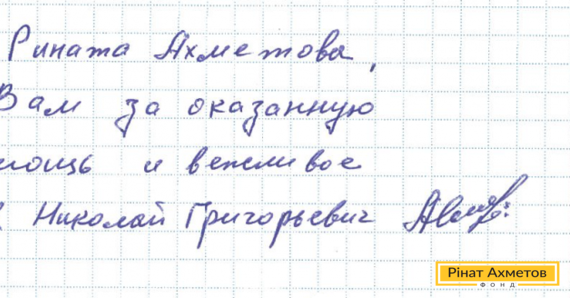 Рината Ахметова,
Вам за оказанную
мощь и вежливое
Николай Григорьевич
Рінат Ахметов
ФОНД